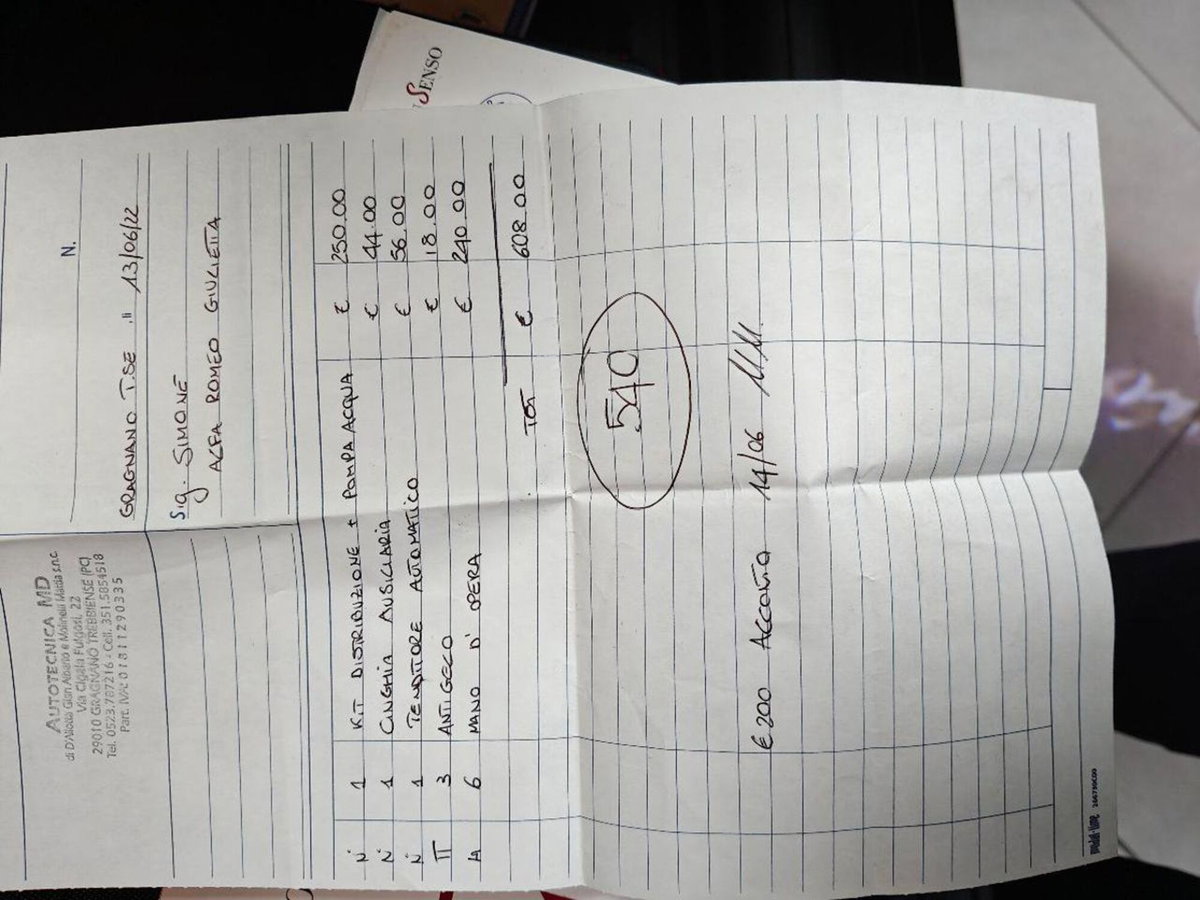 SENSO
AUTOTECNICA MD
di D'Aliotta Gian Alberto e Molinelli Mattia s.n.c.
Via Cigala Fulgosi, 22
29010 GRAGNANO TREBBIENSE (PC)
Tel. 0523.787216 - Cell. 351.5854518
Part. IVA: 01811290335
N.
GRAGNANO T.SE , lì 13/06/22
Sig. SIMONE
ALFA ROMEO GIULIETTA
N. 1 KIT DISTRIBUZIONE + POMPA ACQUA € 250.00
N. 1 CINGHIA AUSILIARIA € 44.00
N. 1 TENDITORE AUTOMATICO € 56.00
3 ANTIGELO € 18.00
H 6 MANO D'OPERA € 240.00
TOT € 608.00
540
€200 ACCONTO 14/06